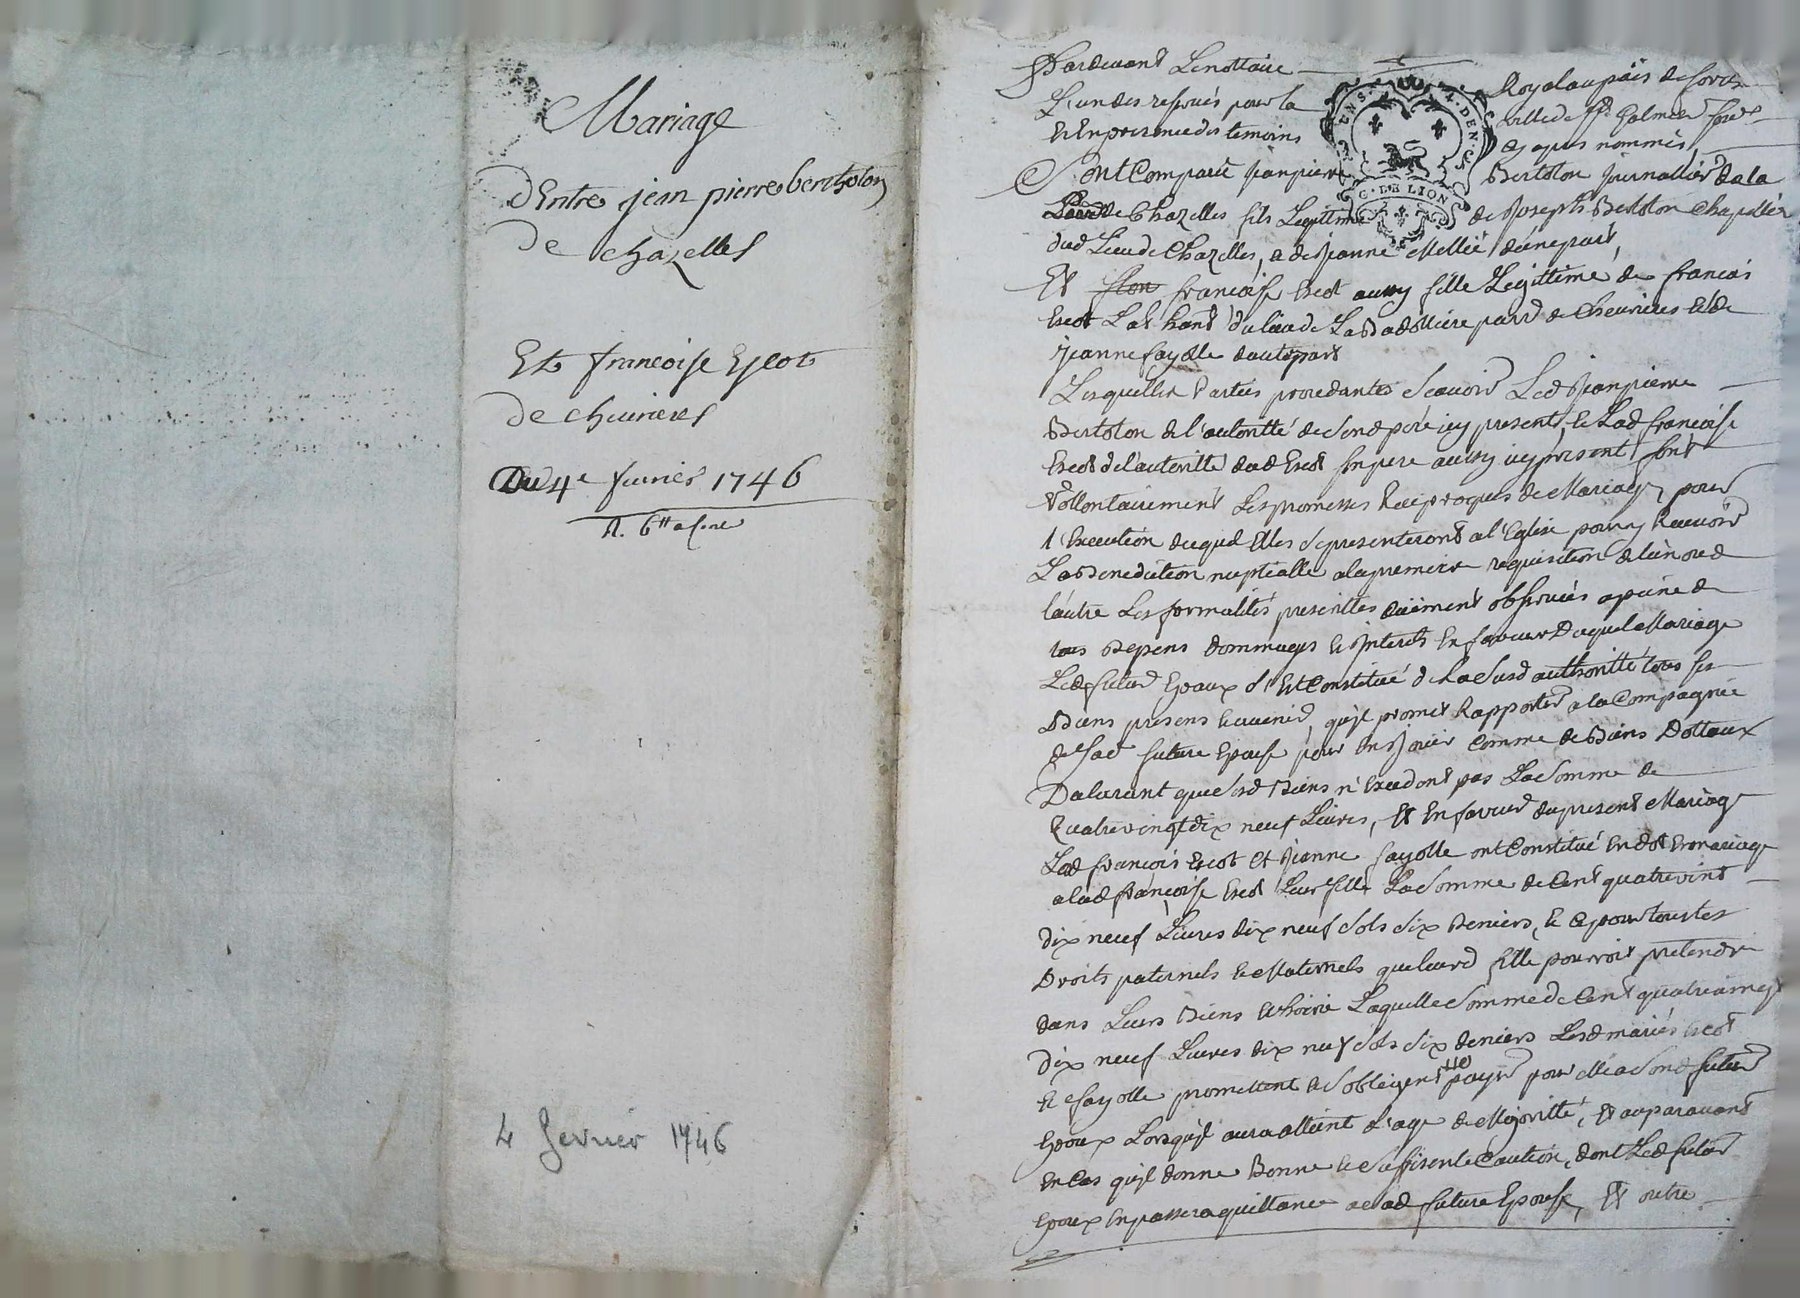 Mariage
D'Entre jean pierre bertholon
de chazelles
Et francoise Escot
de chevrieres
Du 4e fevrier 1746
4 fevrier 1746
Pardevant Le nottaire Royal au païs de forest
soussigné pour la ville de St Galmier
et En presence des temoins cy apres nommés,
Sont Comparu Jean pierre Bertolon Journallier de la
de Chazelles fils Legitime de Joseph Bertolon Chapellier
dud Lieu de Chazelles, & de Jeanne Mellié d'une part,
Et francoise Escot aussy fille Legittime de francois
Escot du lieu de La parr de Chevrieres et de
Jeanne fayolle d'autre part
Lesquelles Parties procedantes scavoir Led Jean pierre
Bertolon de l'autoritté de Sond pere icy present, et Lad francoise
Escot de l'autoritté dud Escot son pere aussy icy present font
Vollontairement Les promesses Reciproques de Mariage, pour
l'Execution duquel Elles se presenteront a l'Eglise pour y Recevoir
La Benediction nuptialle a la premiere requisition de l'un ou de
l'autre Les formalités prescrittes düement observées a peine de
tous Depens dommages et Interets En faveur Duquel Mariage
Led futur Epoux s'Est Constitué de La Susd authoritté tous ses
Biens presens et avenir, qu'jl promet Rapporter a la Compagnie
de Sad future Epouse pour En Jouir Comme de Biens Dottaux
Declarant que Sesd Biens n'Excedont pas La Somme de
Quatre vingt dix neuf Livres, Et En faveur du present Mariage
Led francois Escot Et Jeanne fayolle ont Constitué En dot
a lad francoise Escot Leur fille La Somme de Cent quatre vint
dix neuf Livres dix neuf sols six Deniers, et ce pour tous les
Droits paternels et Maternels que leurd fille pourroit pretendre
dans Leurs Biens et hoirie Laquelle Somme de Cent quatre vingt
dix neuf Livres dix neuf sols six deniers Lesd mariés Escot
et fayolle promettent & s'obligent payer pour elle a Sond futur
Epoux Lors qu'jl aura atteint L'age de Majoritté, Et auparavant
En Cas qu'jl donne Bonne et Suffisente Caution, dont Led futur
Epoux En passera quittance a Sad future Epouse, Et outre